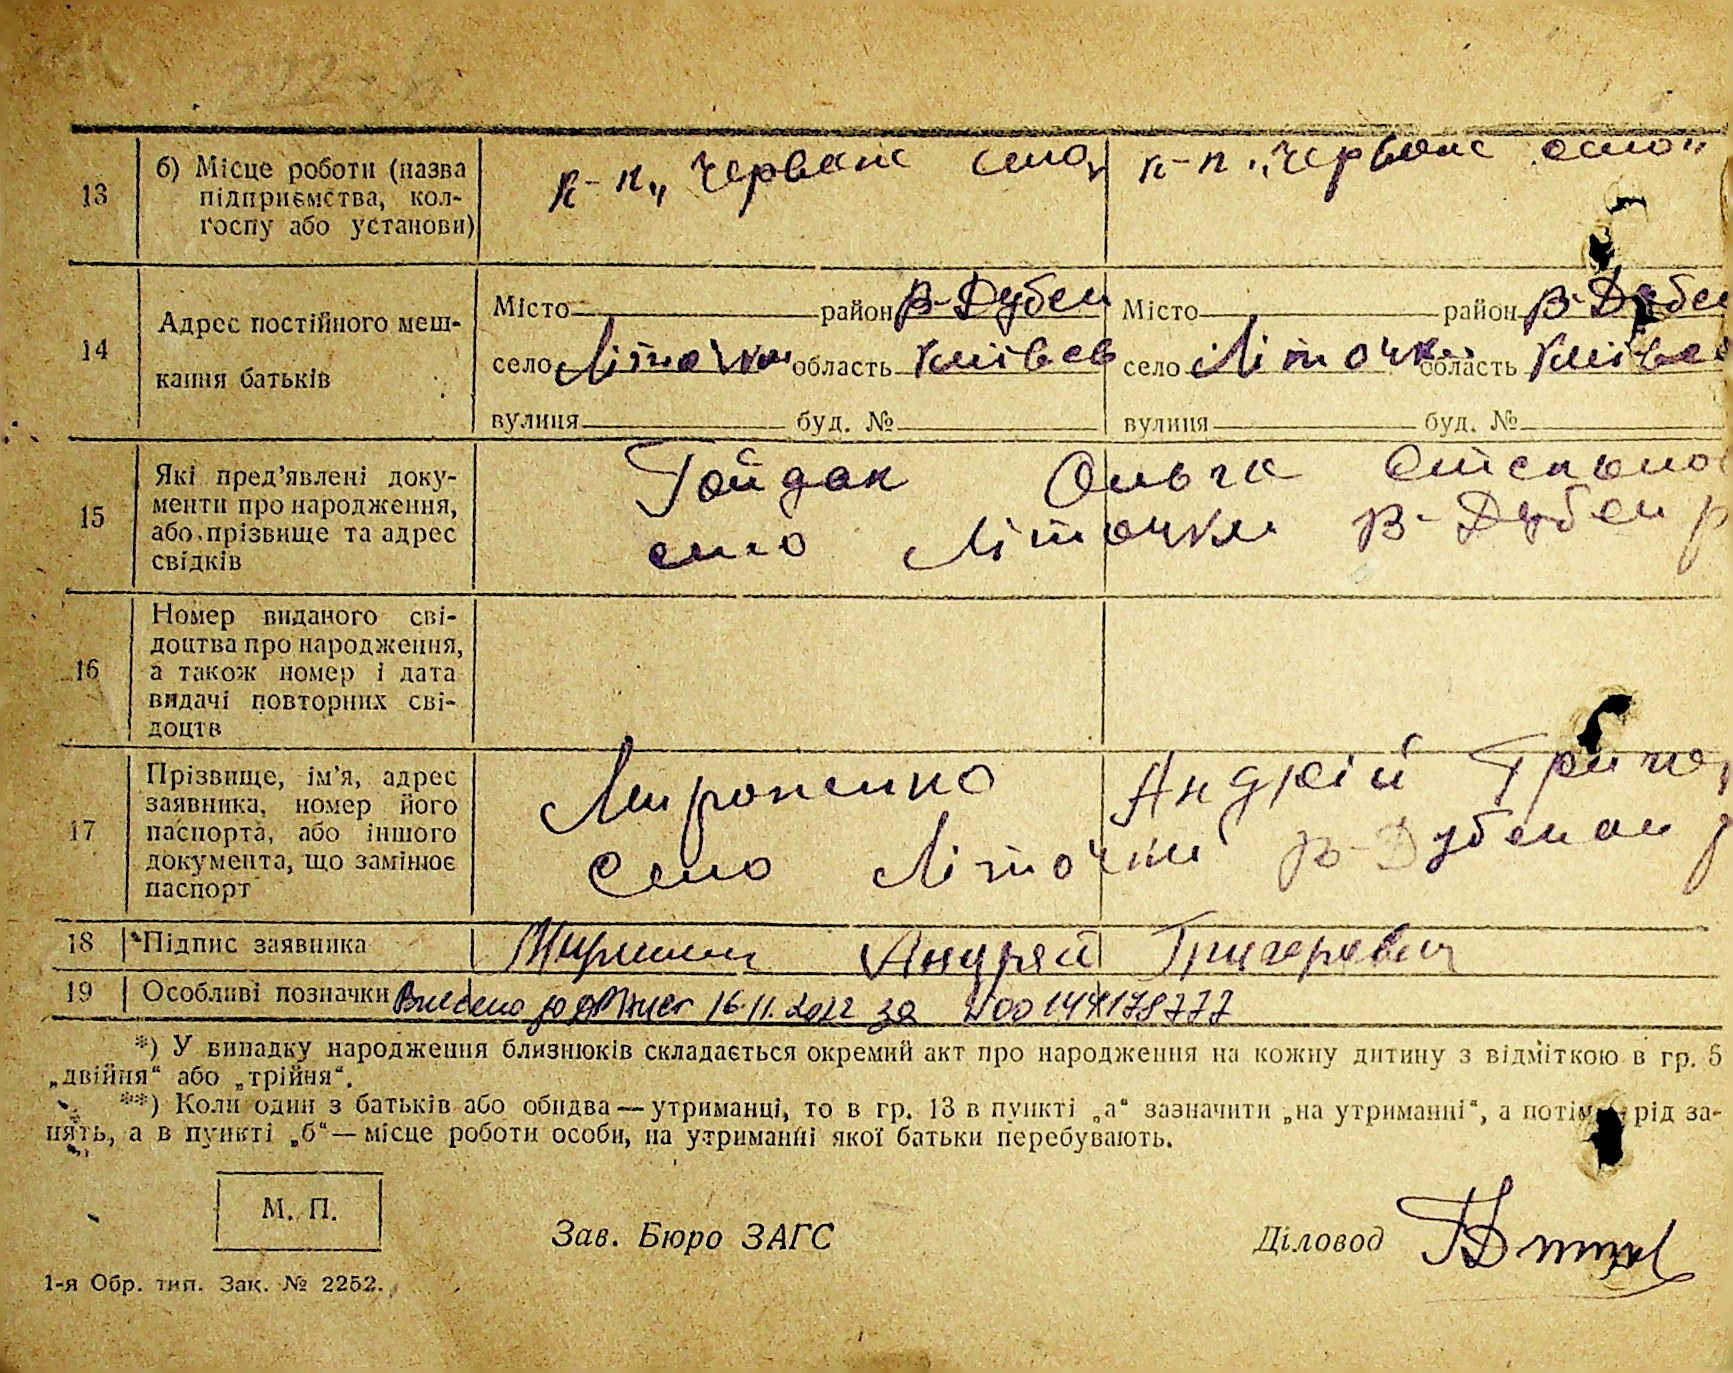 13
б) Місце роботи (назва
підприємства, кол-
госпу або установи)
к-п „Червоне село
к-п „Червоне село"
14
Адрес постійного меш-
кання батьків
Місто район В-Дубеч
село Літочки область Київсь
вулиця буд. №
Місто район В-Дубеч
село Літочки область Київсь
вулиця буд. №
15
Які пред'явлені доку-
менти про народження,
або прізвище та адрес
свідків
Гойдак Ольга Степано
село Літочки В-Дубеч р
16
Номер виданого сві-
доцтва про народження,
а також номер і дата
видачі повторних сві-
доцтв
17
Прізвище, ім'я, адрес
заявника, номер його
паспорта, або іншого
документа, що замінює
паспорт
Мироненко Андрій Григо
Село Літочки В-Дубечан р
18
Підпис заявника
Андрей Григоревич
19
Особливі позначки
Внесено до 16.11.2022 за №00147178777
*) У випадку народження близнюків складається окремий акт про народження на кожну дитину з відміткою в гр. 5
„двійня" або „трійня".
**) Коли один з батьків або обидва — утриманці, то в гр. 13 в пункті „а" зазначити „на утриманні", а потім рід за-
нять, а в пункті „б" — місце роботи особи, на утриманні якої батьки перебувають.
М. П.
Зав. Бюро ЗАГС
Діловод
1-я Обр. тип. Зак. № 2252.